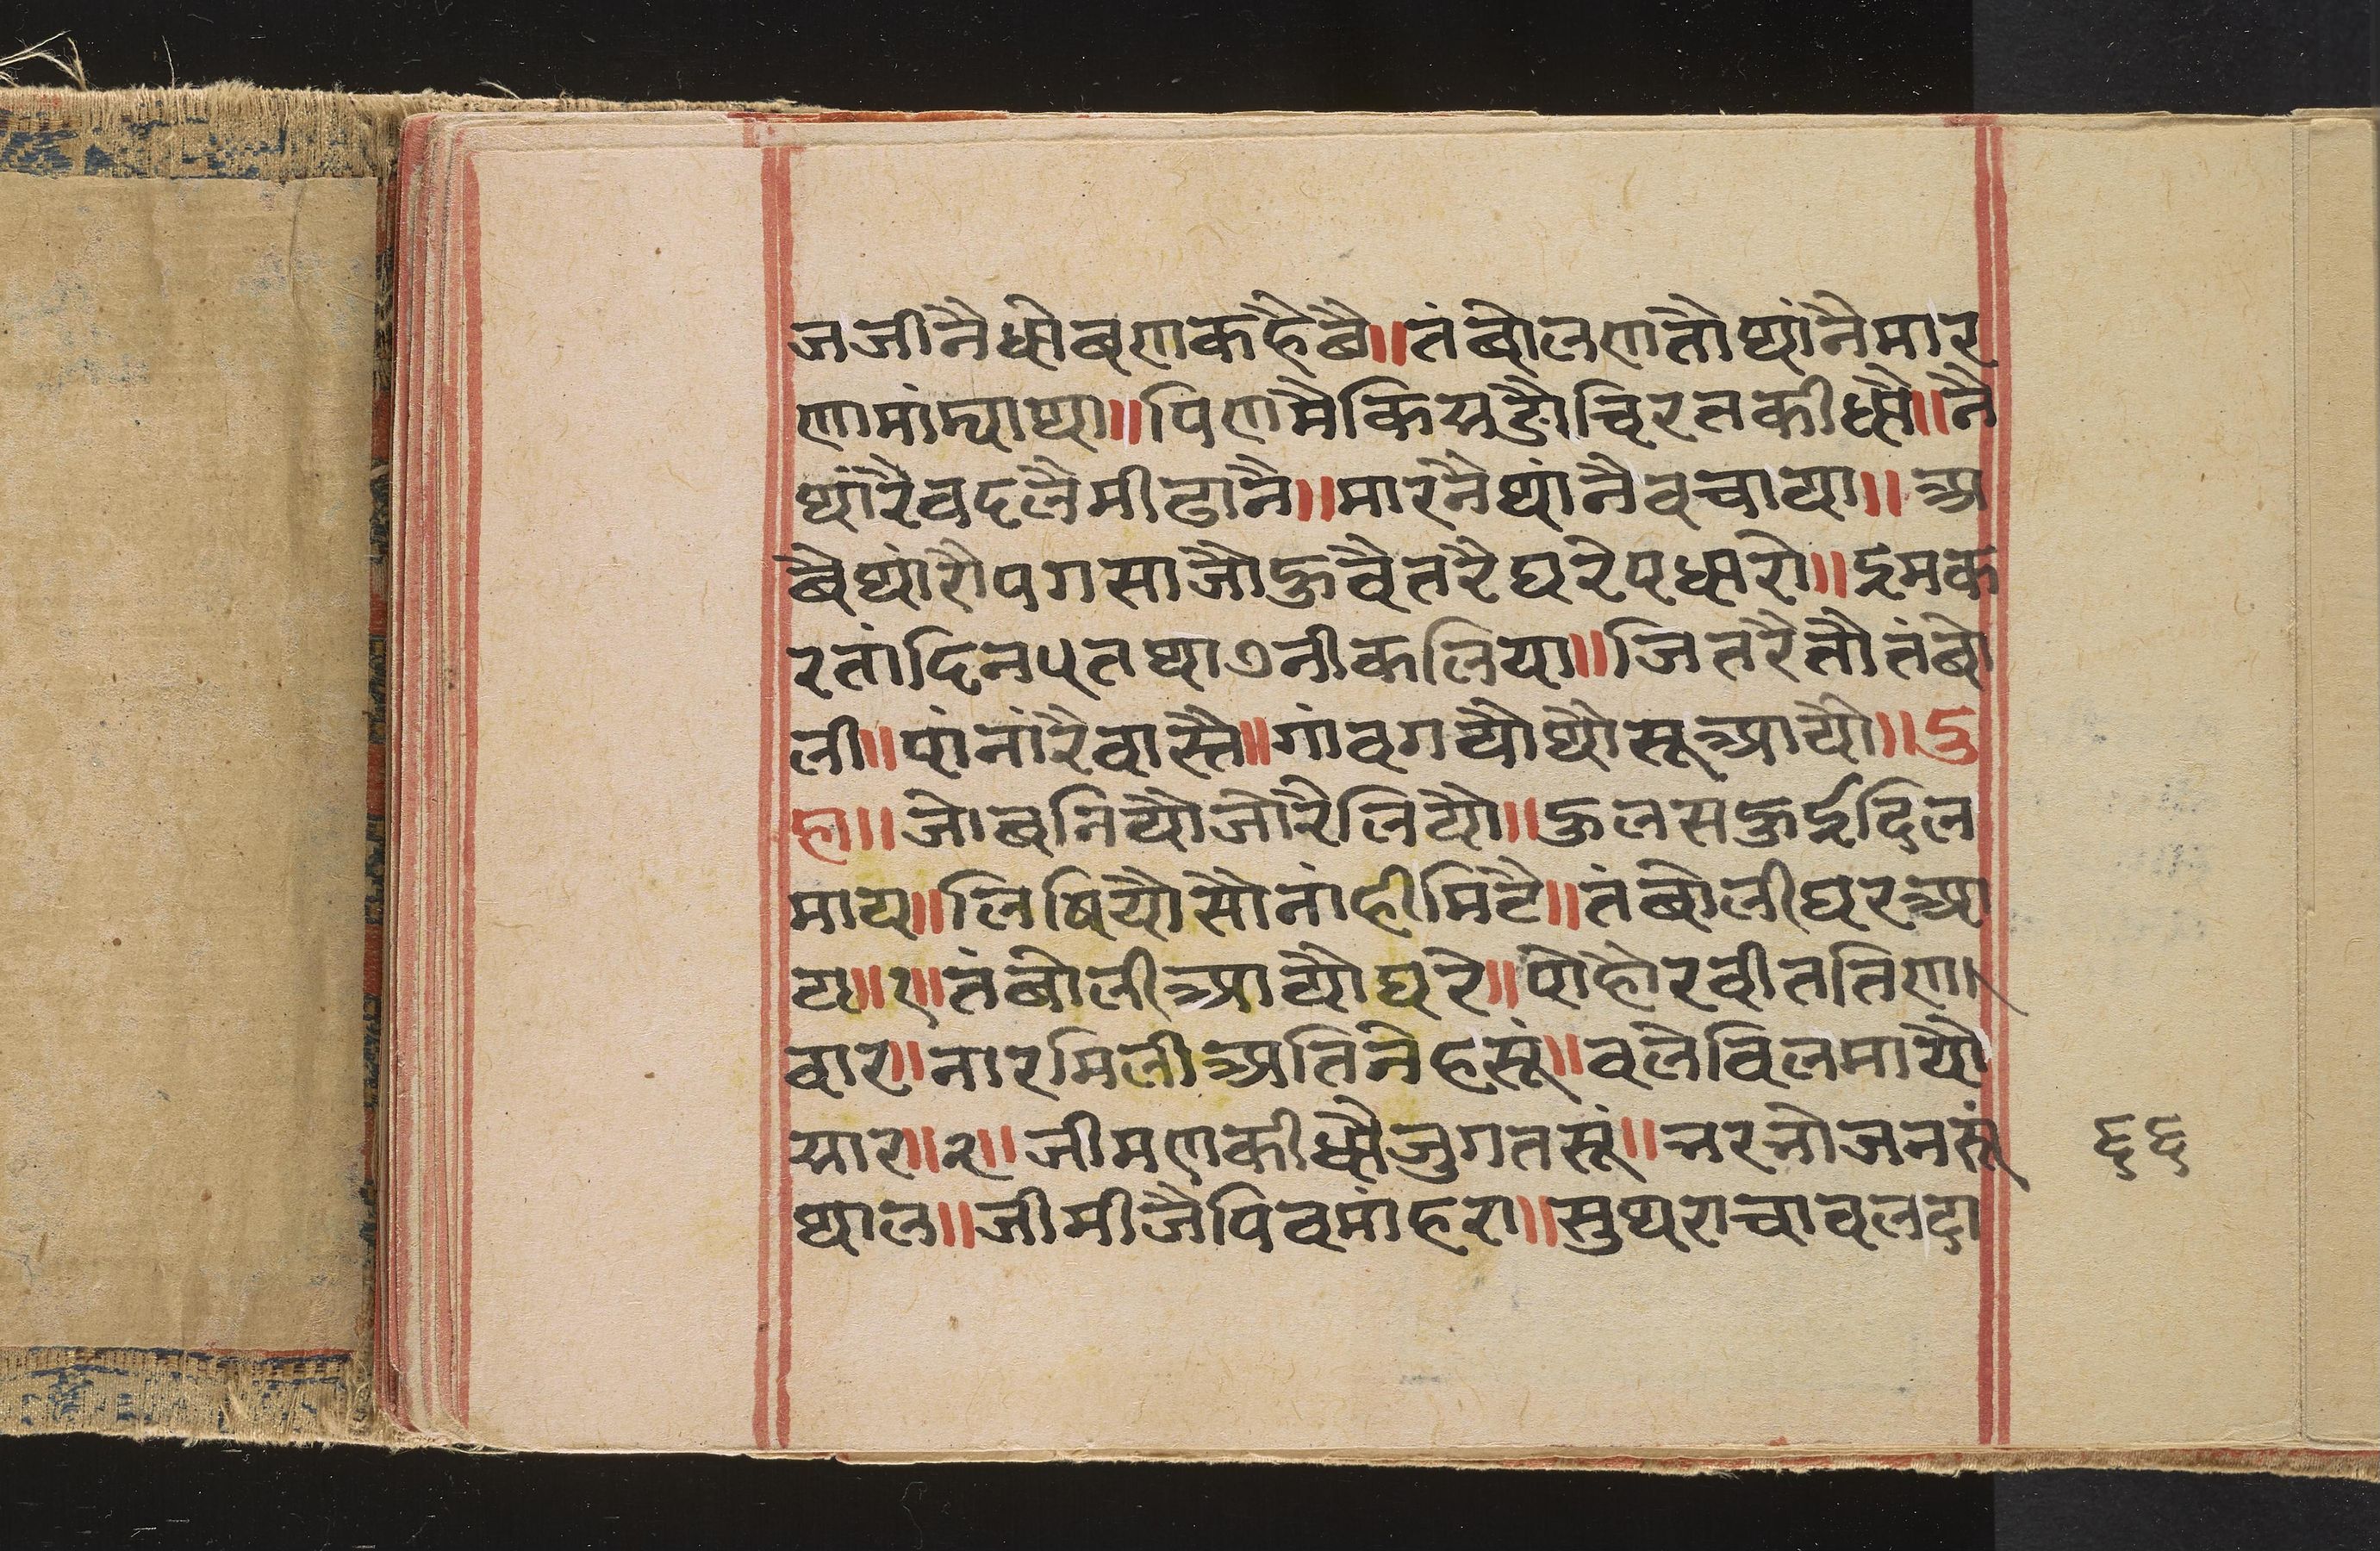 जजीनैधोबणकहैबै॥तंबोलणतौथांनैमार
णमांम्याथा॥पिणमैकिसडौचिरतकीधौ॥नै
थांरैबदलैमीढानै॥मारनैथांनैबचाया॥अ
बैथांरौपगसाजौहुवैतरैघरेपधारो॥इमक
रतांदिन५तथा७नीकलिया॥जितरैतौतंबो
ली॥पांनांरैवास्तै॥गांवगयौथौसूआयौ॥दु
हा॥जोबनियौजोरैलियौ॥हुलसहुईदिल
माय॥लिषियौसौनांहीमिटै॥तंबोलीघरआ
य॥१॥तंबोलीआयौघरे॥पोहोरवीततिण
वार॥नारमिलीअतिनेहसूं॥वलेविलमायौ
यार॥२॥जीमणकीधौजुगतसूं॥नरनोजनसूं
थाल॥जीमीजैपिवमांहरा॥सुथराचावलदा
६६